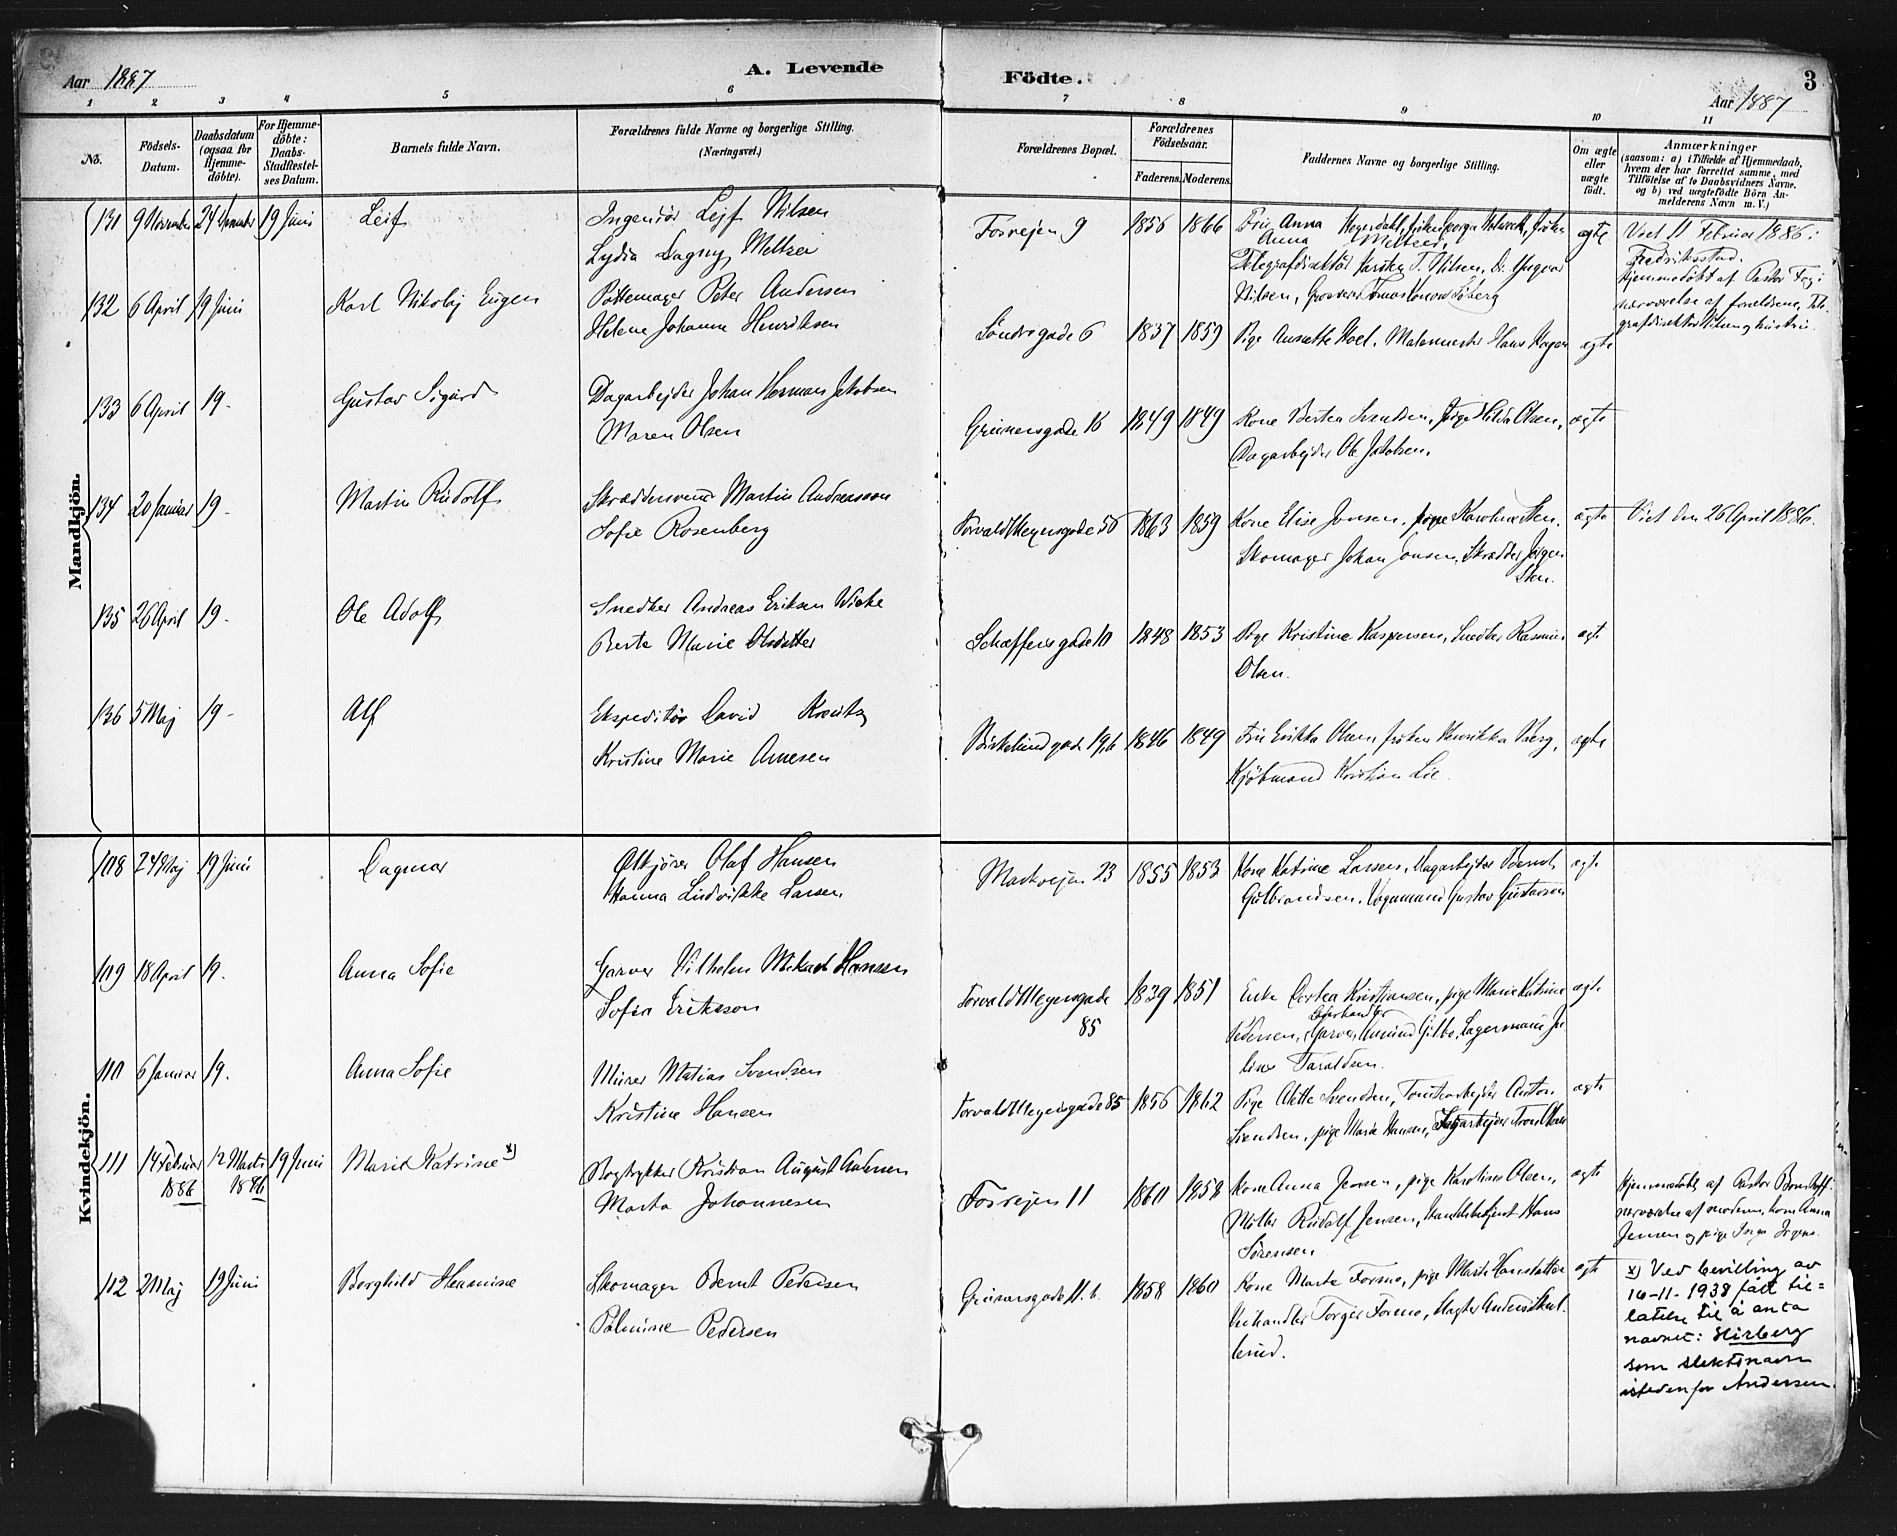 Aar 1887
A. Levende
Födte.
3
Aar 1887
1 2 3 4 5 6 7 8 9 10 11
No.
Födsels-Datum.
Daabsdatum (ogsaa for Hjemme-döbte).
For Hjemme-döbte: Daabs-Stadfæstel-ses Datum.
Barnets fulde Navn.
Forældrenes fulde Navne og borgerlige Stilling.
(Næringsvei.)
Forældrenes Bopæl.
Forældrenes Födselsaar.
Faderens. Moderens.
Faddernes Navne og borgerlige Stilling.
Om ægte eller uægte födt.
Anmærkninger
(saasom: a) i Tilfælde af Hjemmedaab,
hvem der har forrettet samme, med
Tilföielse af to Daabsvidners Navne,
og b) ved uægtefödte Börn An-
melderens Navn m. V.)
Mandkjön.
131 9 November 19 Juni Leif
Ingeniör Leif Nilsen
Lydia Dagny Meltzer
Fosvejen 9 1856 1866
Frue Anna
Anna Meltzer,
Telegrafdirektör T. Nilsen, Dr. Yngvar
Nilsen,
ægte
Viet 11 Februar 1886 i
Fredriksstad.
Hjemmedöbt af Pastor
nærværelse af forældrene, Tele-
grafdirektör Nilsen og hustru.
132 6 April 19 Juni Karl Nikolaj Eugen
Pottemager Peter Andersen
Helene Johanne Henriksen
Söndregade 6 1837 1859
Pige Ansette Hoel, Malermester Hans Hagen
ægte
133 6 April 19- Gustav Sigurd
Dagarbejder Johan Herman Jakobsen
Maren Olsen
Grünersgade 16 1849 1849
Kone Bertea Svendsen, pige Hilda Olsen,
Dagarbejder Ole Jakobsen.
ægte
134 20 Januar 19- Martin Rudolf
Skræddersvend Martin Andreassen
Sofie Rosenberg
Torvald Meyersgade 56 1863 1859
Kone Elise Jonsen, pige Karoline Sten,
Skomager Johan Jonsen, Skrædder Jörgen
Sten.
ægte
Viet den 26 April 1886.
135 26 April 19- Ole Adolf
Snedker Andreas Eriksen Wiike
Berte Marie Olsdatter
Schæffersgade 10 1848 1853
Pige Kristine Kaspersen, Snedker Rasmus
Olsen.
ægte
136 5 Maj 19- Alf
Ekspeditör David
Kristine Marie Arnesen
Birkelundgade 19b 1846 1849
Frue Erikka Olsen, fröken Henrikka
Kjöbmand Kristian Lie.
ægte
Kvindekjön.
108 24 Maj 19 Juni Dagmar
Ölkjörer Olaf Hansen
Hanna Ludvikke Larsen
Markvejen 23 1855 1853
Kone Katrine Larsen, Dagarbejder Bernt
Gulbrandsen, Vognmand Gustav Gustavsen
ægte
109 18 April 19. Anna Sofie
Garver Vilhelm Mikael Hansen
Sofie Eriksson
Torvald Meyersgade
85
1839 1851
Enke Dortea Kristiansen, pige Marie Katrine
Pedersen, Garver Amund Gilbo, Lagermand Ju
lius Taraldsen.
ægte
110 6 Januar 19. Anna Sofie
Murer Matias Svendsen
Kristine Hansen
Torvald Meyersgade 85 1856 1862
Pige Alette Svendsen, Tomtearbejder Anton
Svendsen, pige Marie Hansen,
ægte
111 14 Februar 1886 12 Marts 1886 19 Juni Marit Katrine x)
Bogtrykker Kristian August Andersen
Marta Johannesen
Fosvejen 11 1860 1858
Kone Anna Jensen, pige Karoline Olsen,
Möller Rudolf Jensen, Handelsbetjent Hans
Sörensen
ægte
Hjemmedöbt af Pastor
nærværelse af moderen, kone Anna
Jensen og pige Inga
112 2 Maj 19 Juni Borghild Hermine
Skomager Bernt Pedersen
Palmine Pedersen
Grünersgade 11.b. 1858 1860
Kone Marte Forsmo, pige Marte Hansdatter
Vedhandler Torger Forsmo, Slagter Anders
lerud.
ægte
x) Ved bevilling av
16-11-1938 fått til-
latelse til å anta
navnet: Hirberg
som slektsnavn
istedenfor Andersen.